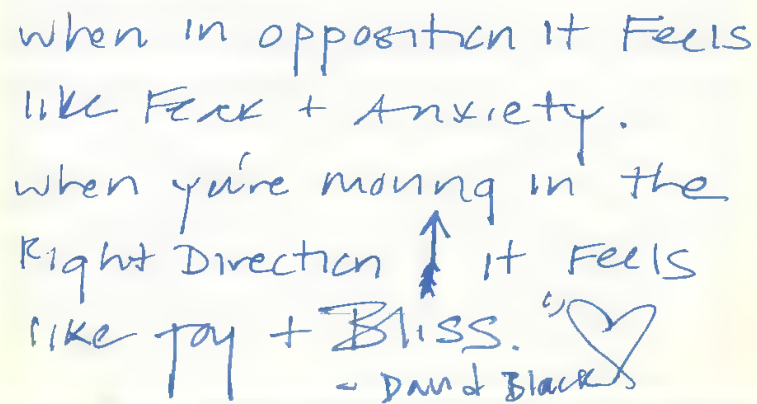 when in opposition it Feels
like Fear + Anxiety.
when you're moving in the
Right Direction it Feels
like joy + Bliss."
- David Black